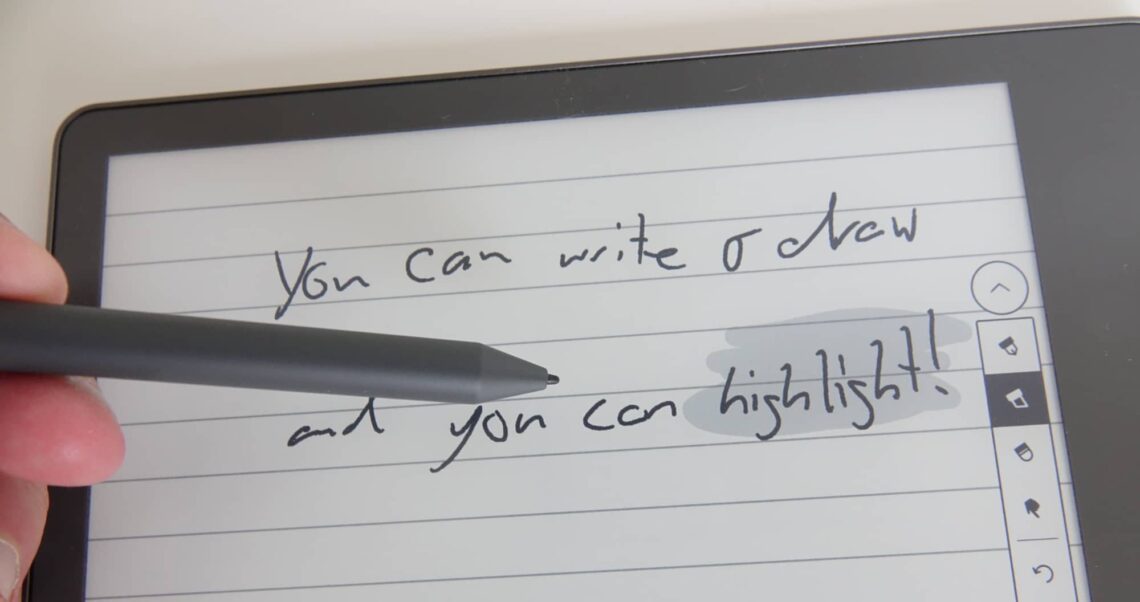 You can write o draw
and you can highlight!